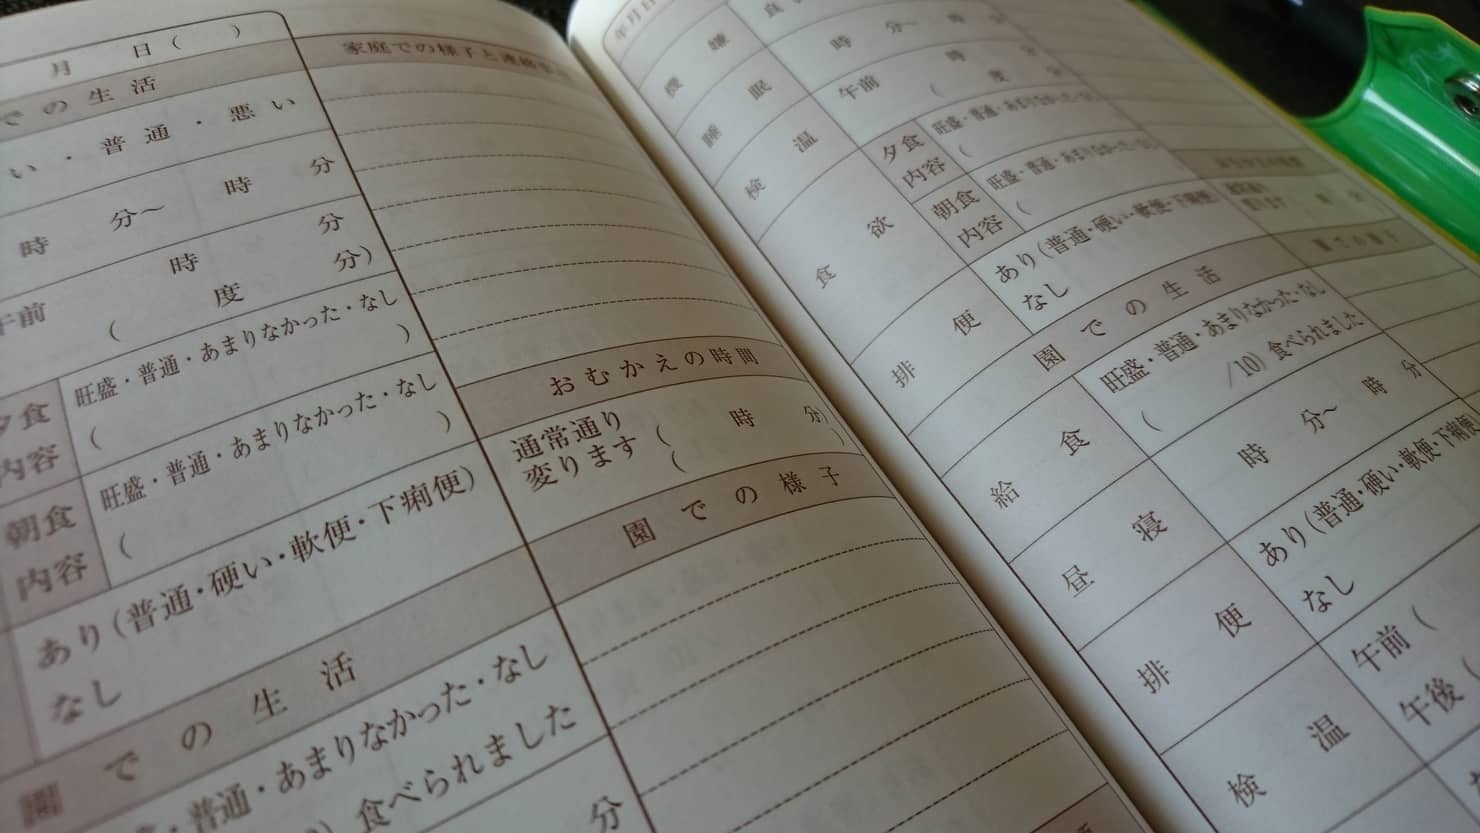 月 日 ( )
での生活
い・普通・悪い
時 分〜 時 分
午前 時 分
( 度 分)
夕食
内容
旺盛・普通・あまりなかった・なし
( )
朝食
内容
旺盛・普通・あまりなかった・なし
( )
あり(普通・硬い・軟便・下痢便)
なし
園での生活
・普通・あまりなかった・なし
) 食べられました
分
家庭での様子と連絡事
おむかえの時間
通常通り
変ります
( 時 分)
( )
園での様子
年月日
機嫌
良
睡眠
時 分〜 時
検温
午前 時 分
( 度 分
食欲
夕食
内容
旺盛・普通・あまりなかった・なし
(
朝食
内容
旺盛・普通・あまりなかった・なし
(
排便
あり(普通・硬い・軟便・下痢便)
なし
園での生活
給食
旺盛・普通・あまりなかった・なし
( /10) 食べられました
昼寝
時 分〜 時 分
排便
あり(普通・硬い・軟便・下痢便)
なし
検温
午前 (
午後 (
園での様子